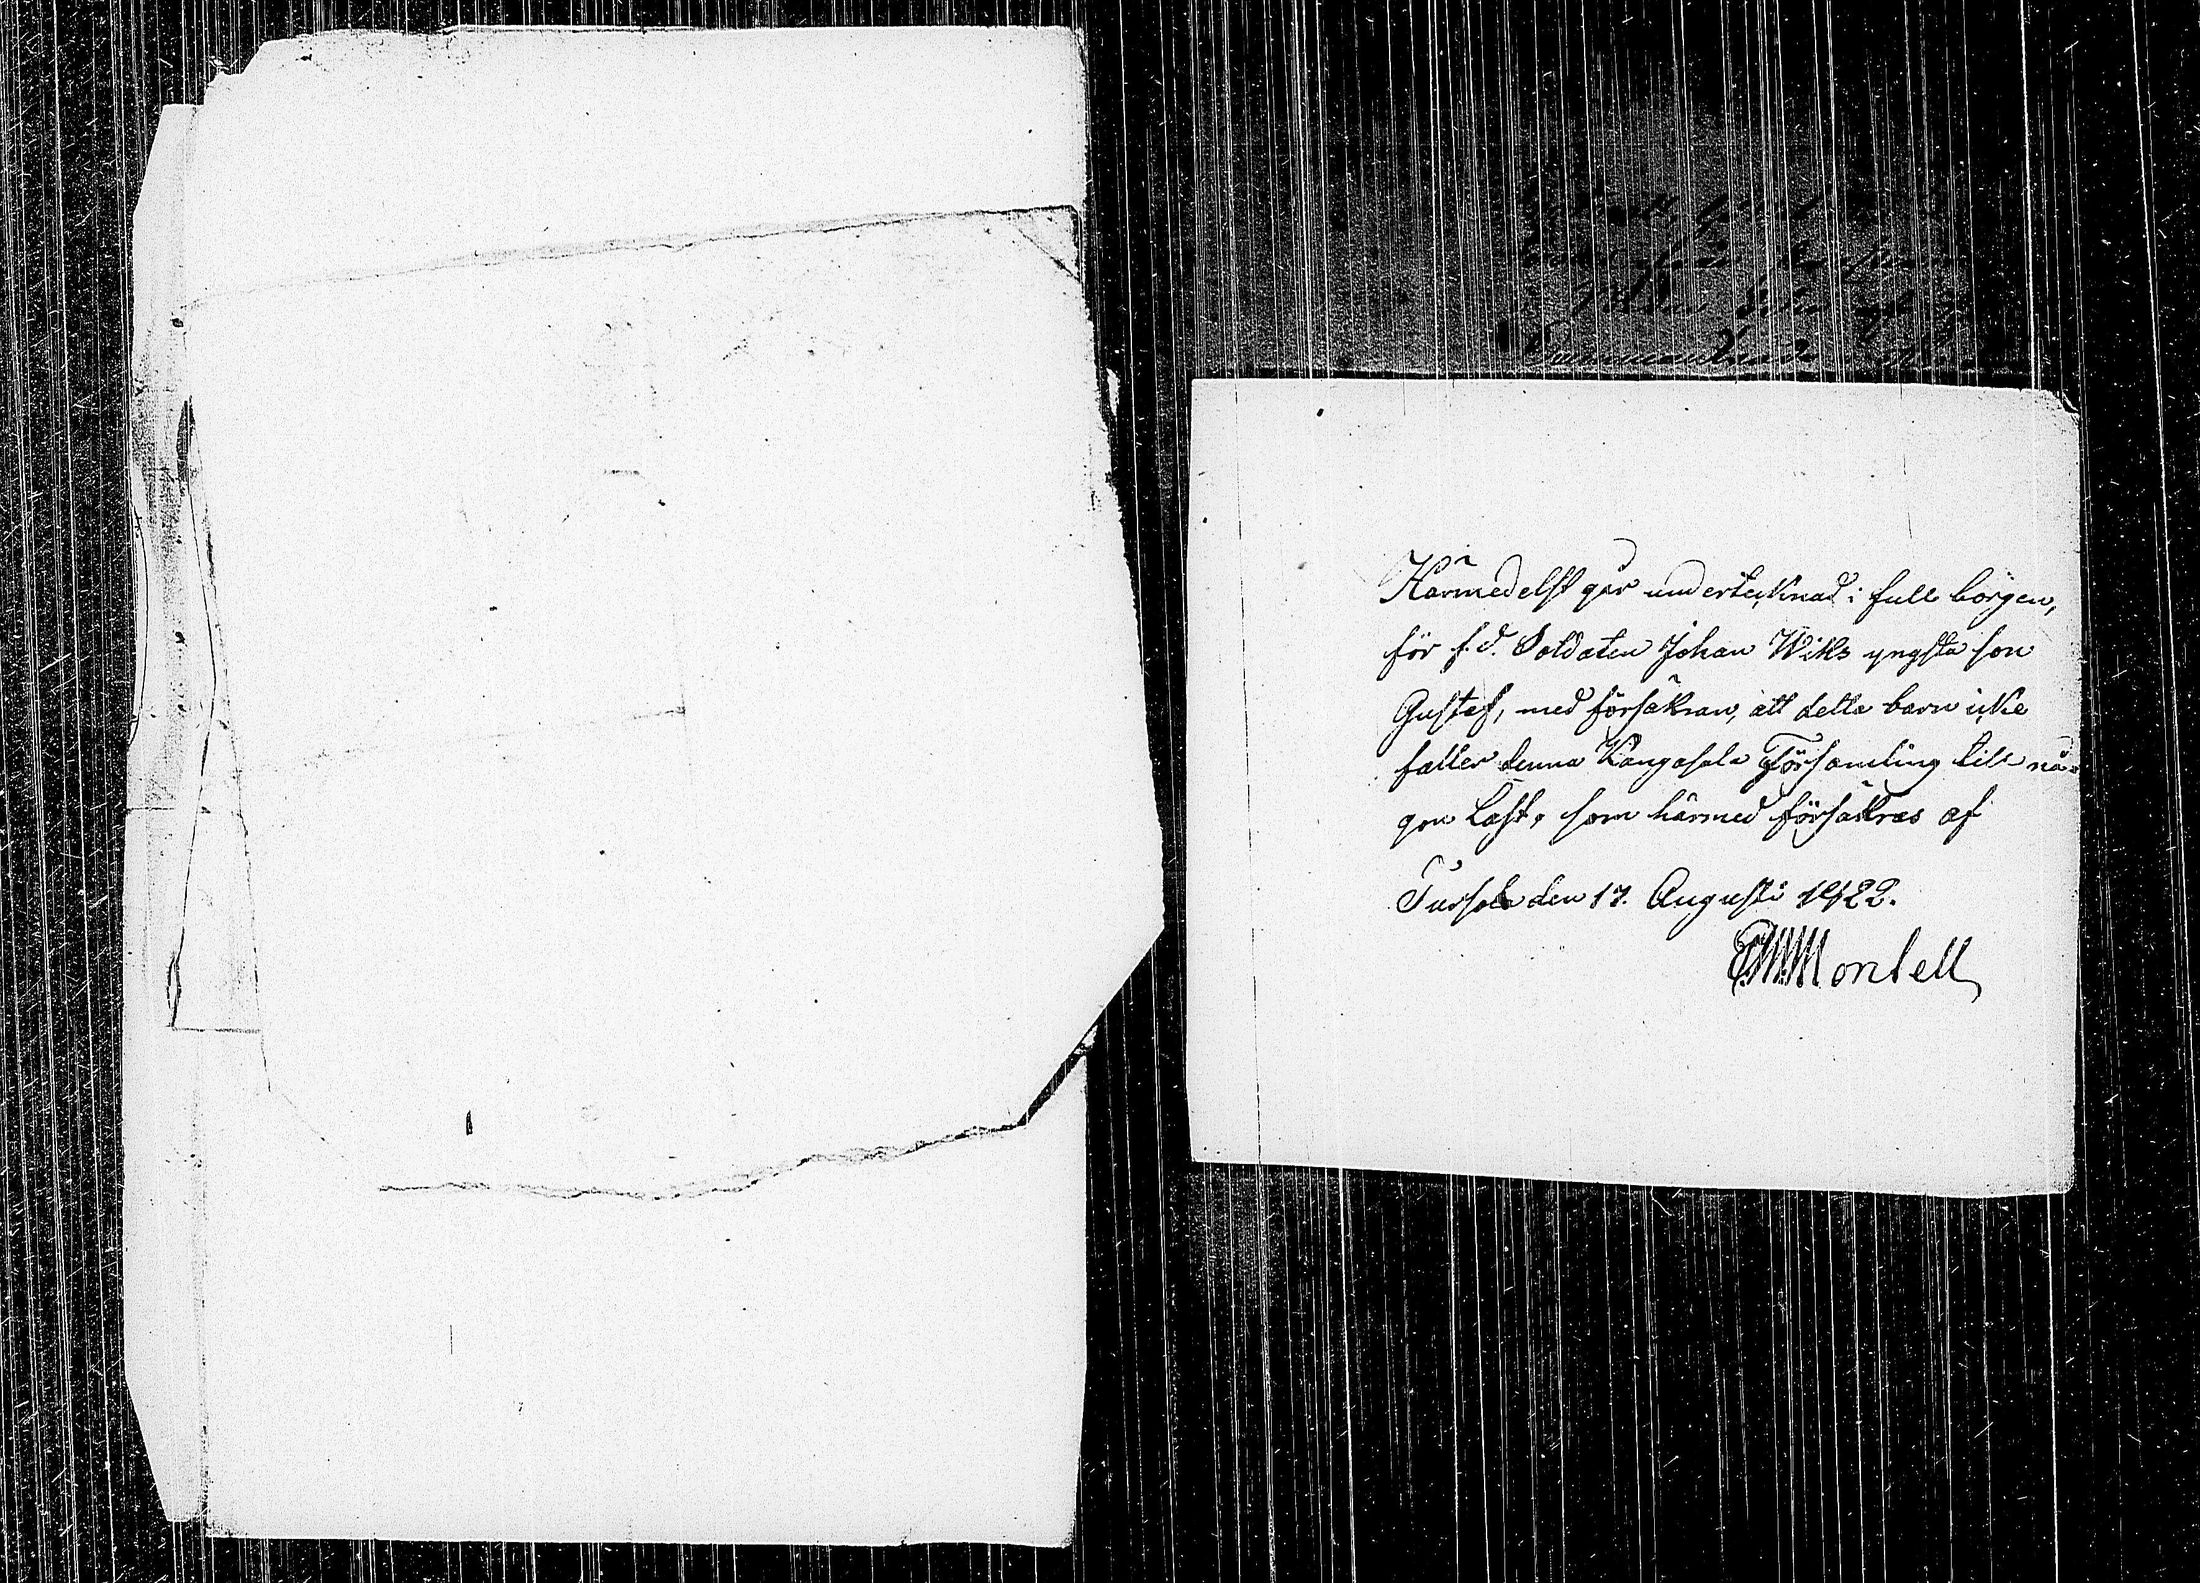 Härmedelst går undertecknad i full borgen,
för f. d. Soldaten Johan Wiks yngsta son
Gustaf, med försäkran, att detta barn icke
faller denna Kangasala Församling till nå-
gon Last, som härmed försäkras af
den 17. Augusti
Montell